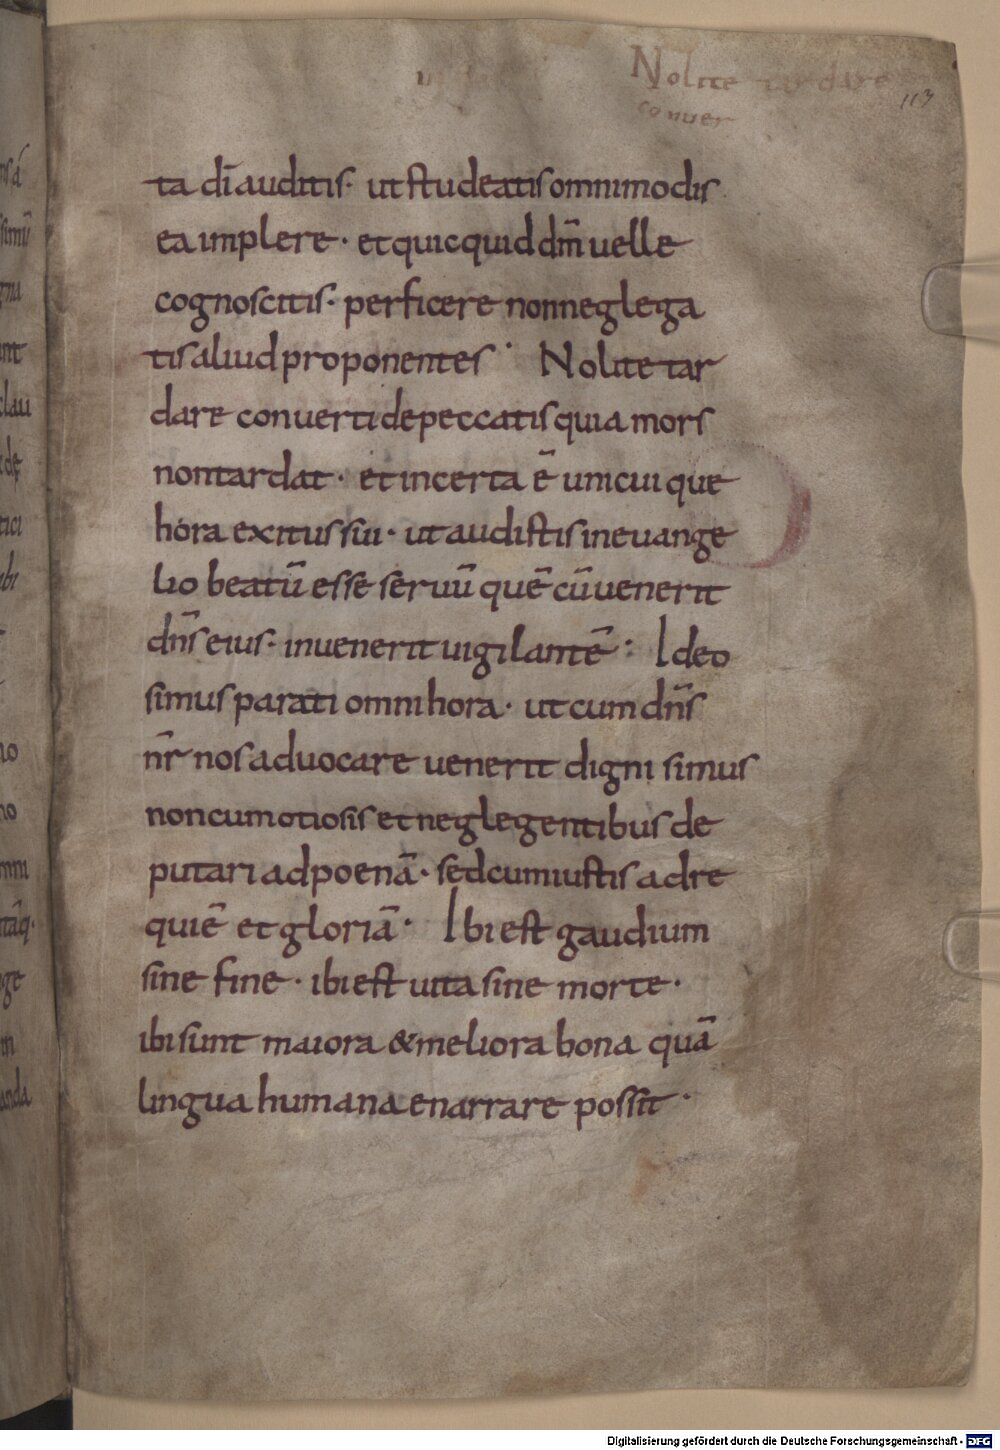 Nolite tardare
113
conuer
ta dī auditis· ut studeatis omnimodis
ea implere· et quicquid dm̄ uelle
cognoscitis· perficere non neglega
tis aliud proponentes· Nolite tar
dare conuerti de peccatis quia mors
non tardat· et incerta ē unicuique
hora exitus sui· ut audistis in euange
lio beatū esse seruū quē cū uenerit
dn̄s eius· inuenerit uigilantē· Ideo
simus parati omni hora· ut cum dn̄s
nr̄ nos aduocare uenerit digni simus
non cum otiosis et neglegentibus de
putari ad poenā· sed cum iustis ad re
quiē et gloriā· Ibi est gaudium
sine fine· ibi est uita sine morte·
ibi sunt maiora & meliora bona quā
lingua humana enarrare possit·
Digitalisierung gefördert durch die Deutsche Forschungsgemeinschaft - DFG